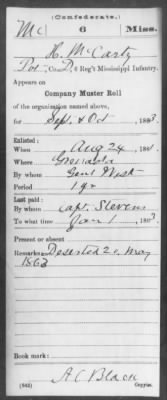 (Confederate.)
Mc 6 Miss.
H. McCarty
Pvt, Co. D, 6 Reg't Mississippi Infantry.
Appears on
Company Muster Roll
of the organization named above,
for Sept & Oct, 1863.
Enlisted:
When Aug 24, 1861.
Where Grenada
By whom Genl West
Period 1 yr
Last paid:
By whom Capt. Stevens
To what time Jan 1, 1863.
Present or absent
Remarks: Deserted 20 May
1863
Book mark:
A C Black
(642) Copyist.